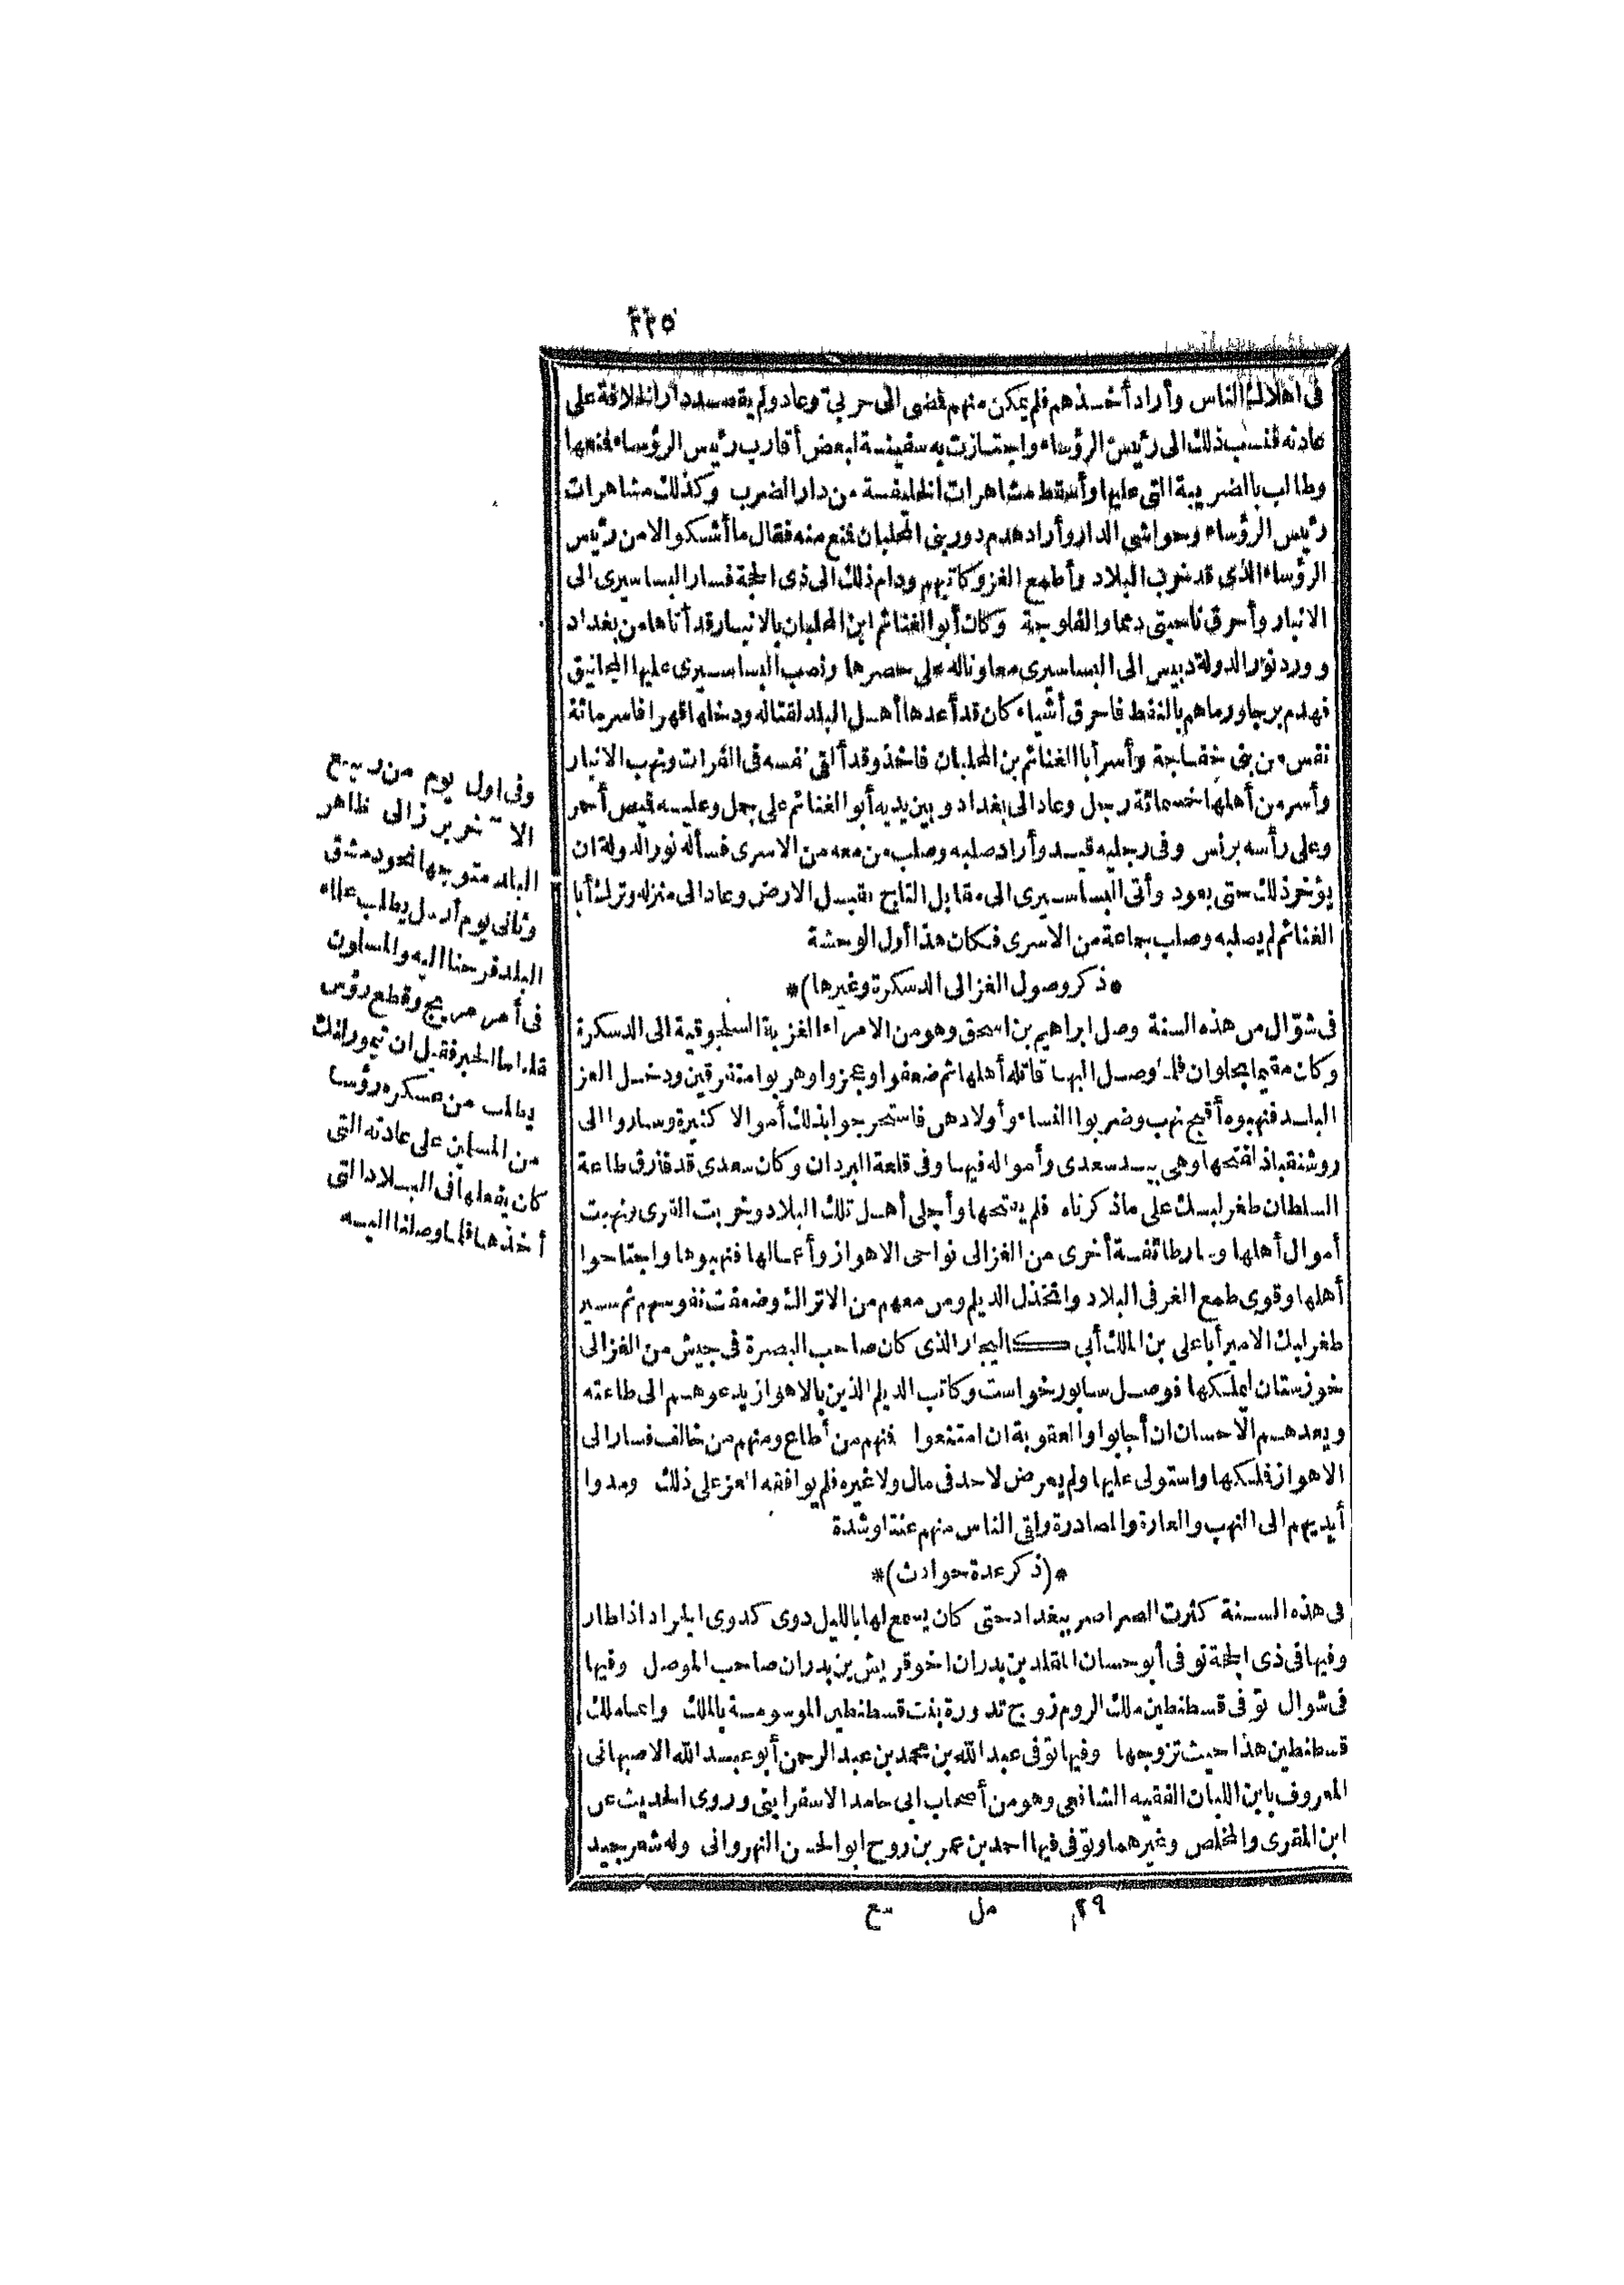 ٢٢٥
فى اهلاك الناس وأراد أخذهم فلم يمكن منهم فمضى الى حربى وعاد ولم يقصد دار الخلافة على
عادته فنسب ذلك الى رئيس الرؤساء واجتازت به سفينة لبعض أقارب رئيس الرؤساء فمنعها
وطالب بالضريبة التى عليها وأسقط مشاهرات الخليفة من دار الضرب وكذلك مشاهرات
رئيس الرؤساء وحواشى الدار وأراد هدم دور بنى المحلبان فمنع منه فقال ما أشكو الا من رئيس
الرؤساء الذى قد خرب البلاد وأطمع الغز وكاتبهم ودام ذلك الى ذى الحجة فسار البساسيرى الى
الانبار وأحرق ناحيتى دمما والفلوجة وكان أبو الغنائم ابن المحلبان بالانبار قد أتاها من بغداد
وورد نور الدولة دبيس الى البساسيرى معاونا له على حصرها ونصب البساسيرى عليها المجانيق
فهدم برجا ورماهم بالنفط فاحرق أشياء كان قد أعدها أهل البلد لقتاله ودخلها قهرا فاسر مائة
نفس من بنى خفاجة وأسر أبا الغنائم بن المحلبان فاخذ وقد ألقى نفسه فى الفرات ونهب الانبار
وأسر من أهلها خمسمائة رجل وعاد الى بغداد وبين يديه أبو الغنائم على جمل وعليه قميص أحمر
وعلى رأسه برنس وفى رجليه قيد وأراد صلبه وصلب من معه من الاسرى فسأله نور الدولة ان
يؤخر ذلك حتى يعود وأتى البساسيرى الى مقابل التاج فقبل الارض وعاد الى منزله وترك أبا
الغنائم لم يصلبه وصلب جماعة من الاسرى فكان هذا أول الوحشة
*ذكر وصول الغز الى الدسكرة وغيرها)*
فى شوّال من هذه السنة وصل ابراهيم بن اسحق وهو من الامراء الغزية السلجوقية الى الدسكرة
وكان مقيما بحلوان فلما وصل اليها قاتله أهلها ثم ضعفوا وعجزوا وهربوا متفرقين ودخل الغز
البلد فنهبوه أقبح نهب وضربوا النساء وأولادهن فاستخرجوا بذلك أموالا كثيرة وساروا الى
روشنقباذ لفتحها وهى بيد سعدى وأمواله فيها وفى قلعة البردان وكان سعدى قد فارق طاعة
السلطان طغرلبك على ماذكرناه فلم يفتحها وأجلى أهل تلك البلاد وخربت القرى ونهبت
أموال أهلها وسار طائفة أخرى من الغز الى نواحى الاهواز وأعمالها فنهبوها واجتاحوا
أهلها وقوى طمع الغز فى البلاد وانخذل الديلم ومن معهم من الاتراك وضعفت نفوسهم ثم سير
طغرلبك الامير أبا على بن الملك أبى كاليجار الذى كان صاحب البصرة فى جيش من الغز الى
خوزستان ليملكها فوصل سابور خواست وكاتب الديلم الذين بالاهواز يدعوهم الى طاعته
ويعدهم الاحسان ان أجابوا والعقوبة ان امتنعوا فمنهم من أطاع ومنهم من خالف فسار الى
الاهواز فملكها واستولى عليها ولم يعرض لاحد فى مال ولا غيره فلم يوافقه الغز على ذلك ومدوا
أيديهم الى النهب والغارة والمصادرة ولقى الناس منهم عنتا وشدة
*(ذكر عدة حوادث)*
فى هذه السنة كثرت الصراصر ببغداد حتى كان يسمع لها بالليل دوى كدوى الجراد اذا طار
وفيها فى ذى الحجة توفى أبو حسان المقلد بن بدران اخو قريش بن بدران صاحب الموصل وفيها
فى شوال توفى قسطنطين ملك الروم زوج تدورة بنت قسطنطين الموسومة بالملك وانما ملك
قسطنطين هذا حيث تزوجها وفيها توفى عبد الله بن محمد بن عبد الرحمن أبو عبد الله الاصبهانى
المعروف بابن اللبان الفقيه الشافعى وهو من أصحاب ابى حامد الاسفراينى وروى الحديث عن
ابن المقرى والمخلص وغيرهما وتوفى فيها احمد بن عمر بن روح ابو الحسن النهروانى وله شعر جيد
٢٩ مل سع
وفى اول يوم من ربيع
الآخر برز الى ظاهر
البلد متوجها نحو دمشق
وثانى يوم أرسل يطلب علماء
البلد فرحنا اليه والمسلمون
فى أمر مريج وقطع رؤس
فقلنا ما الخبر فقيل ان تيمورلنك
يطلب من عسكره رؤسا
من المسلمين على عادته التى
كان يفعلها فى البلاد التى
أخذها فلما وصلنا اليه